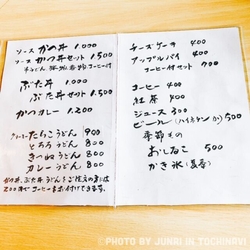 ソースかつ丼 1.000
ソースかつ丼セット 1.500
ぶた丼 1.000
ぶた丼セット 1.500
かつカレー 1.200
たらこうどん 900
とろろうどん 800
きつねうどん 800
カレーうどん 800
かつ丼、ぶた丼、うどんをご注文の方には
200円でコーヒーをお付けできます。
チーズケーキ 400
アップルパイ 400
コーヒー付セット 700
コーヒー 400
紅茶 400
ジュース 300
ビール(ハイネケン缶) 500
季節もの
おしるこ 500
かき氷(夏季)
©PHOTO BY JUNKI IN TOCHINAVI